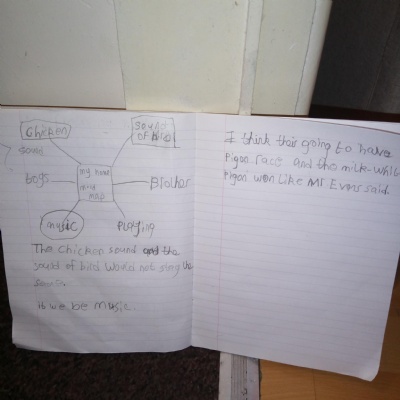 Chicken
sound
sound
of bird
my home
mind
map
Brother
music
playing
The Chicken sound and the
sould of bird would not sing the
is we be music.
I think their going to have
Pigon race and the milk-white
Pigon won like Mr Evans said